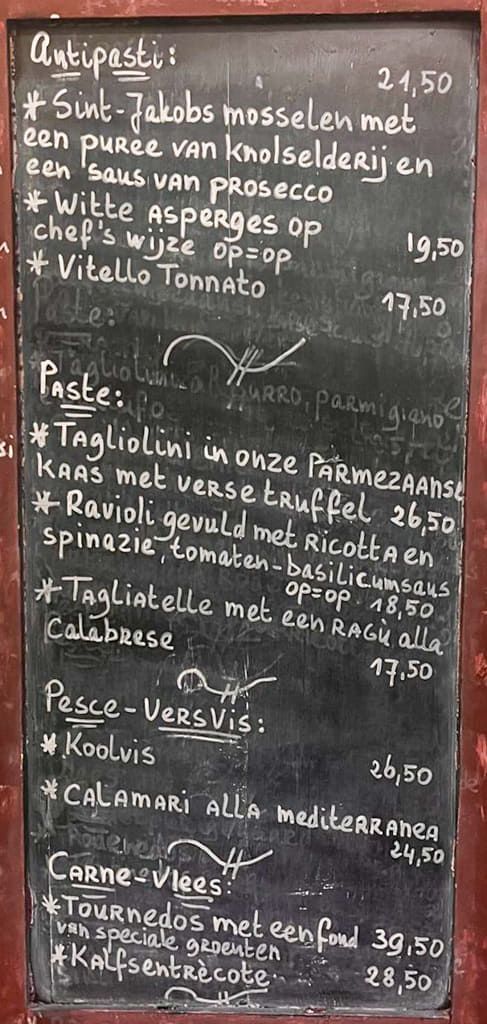 Antipasti:
21,50
* Sint-Jakobs mosselen met
een puree van knolselderij en
een saus van prosecco
* Witte asperges op
chef's wijze op=op 19,50
* Vitello Tonnato
17,50
Paste:
* Tagliolini in onze Parmezaanse
kaas met verse truffel 26,50
* Ravioli gevuld met ricotta en
spinazie, tomaten-basilicumsaus
op=op 18,50
* Tagliatelle met een ragù alla
Calabrese
17,50
Pesce-Versvis:
* Koolvis
26,50
* Calamari alla mediterranea
24,50
Carne-Vlees:
* Tournedos met een fond 39,50
van speciale groenten
* Kalfsentrècote 28,50